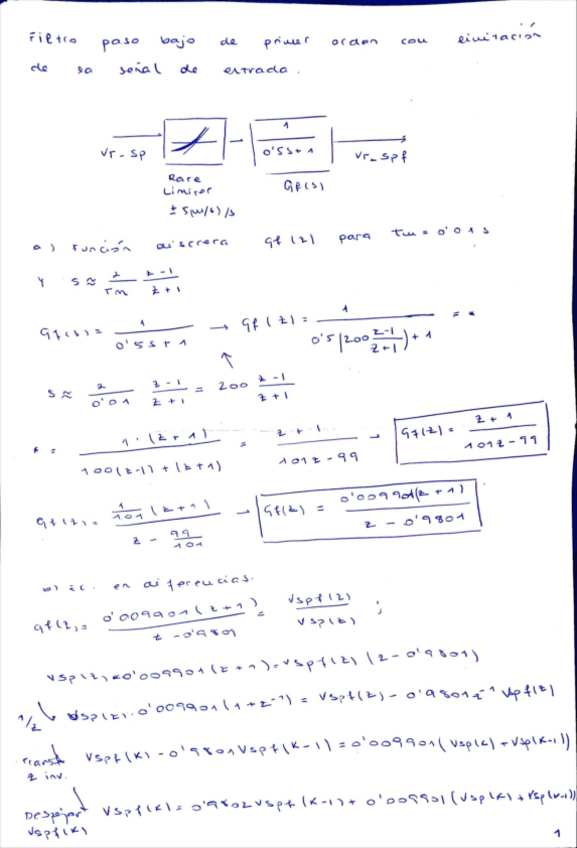 Filtro paso bajo de primer orden con limitación
de la señal de entrada.
Vr-sp
1
0'5s+1
Vr_spf
Rate
Limiter
± 5(m/s)/s
Gf(s)
a) Función discreta Gf(z) para Tm = 0'01s
Y s ≈ 2/Tm z-1/z+1
Gf(s) = 1/(0'5s+1) → Gf(z) = 1/(0'5(200 z-1/z+1)+1) = *
s ≈ 2/0'01 z-1/z+1 = 200 z-1/z+1
* = 1·(z+1)/(100(z-1)+(z+1)) = z+1/(101z-99) → Gf(z) = z+1/(101z-99)
Gf(z) = 1/101 (z+1)/(z - 99/101) → Gf(z) = 0'009901(z+1)/(z-0'9801)
b) ec. en diferencias.
Gf(z) = 0'009901(z+1)/(z-0'9801) = Vspf(z)/Vsp(z) ;
Vsp(z)·0'009901(z+1) = Vspf(z)(z-0'9801)
1/z Vsp(z)·0'009901(1+z⁻¹) = Vspf(z) - 0'9801z⁻¹ Vspf(z)
Transf z inv. Vspf(k) - 0'9801Vspf(k-1) = 0'009901(Vsp(k)+Vsp(k-1))
Despejar Vspf(k) Vspf(k) = 0'9802Vspf(k-1) + 0'009901(Vsp(k)+Vsp(k-1))
1